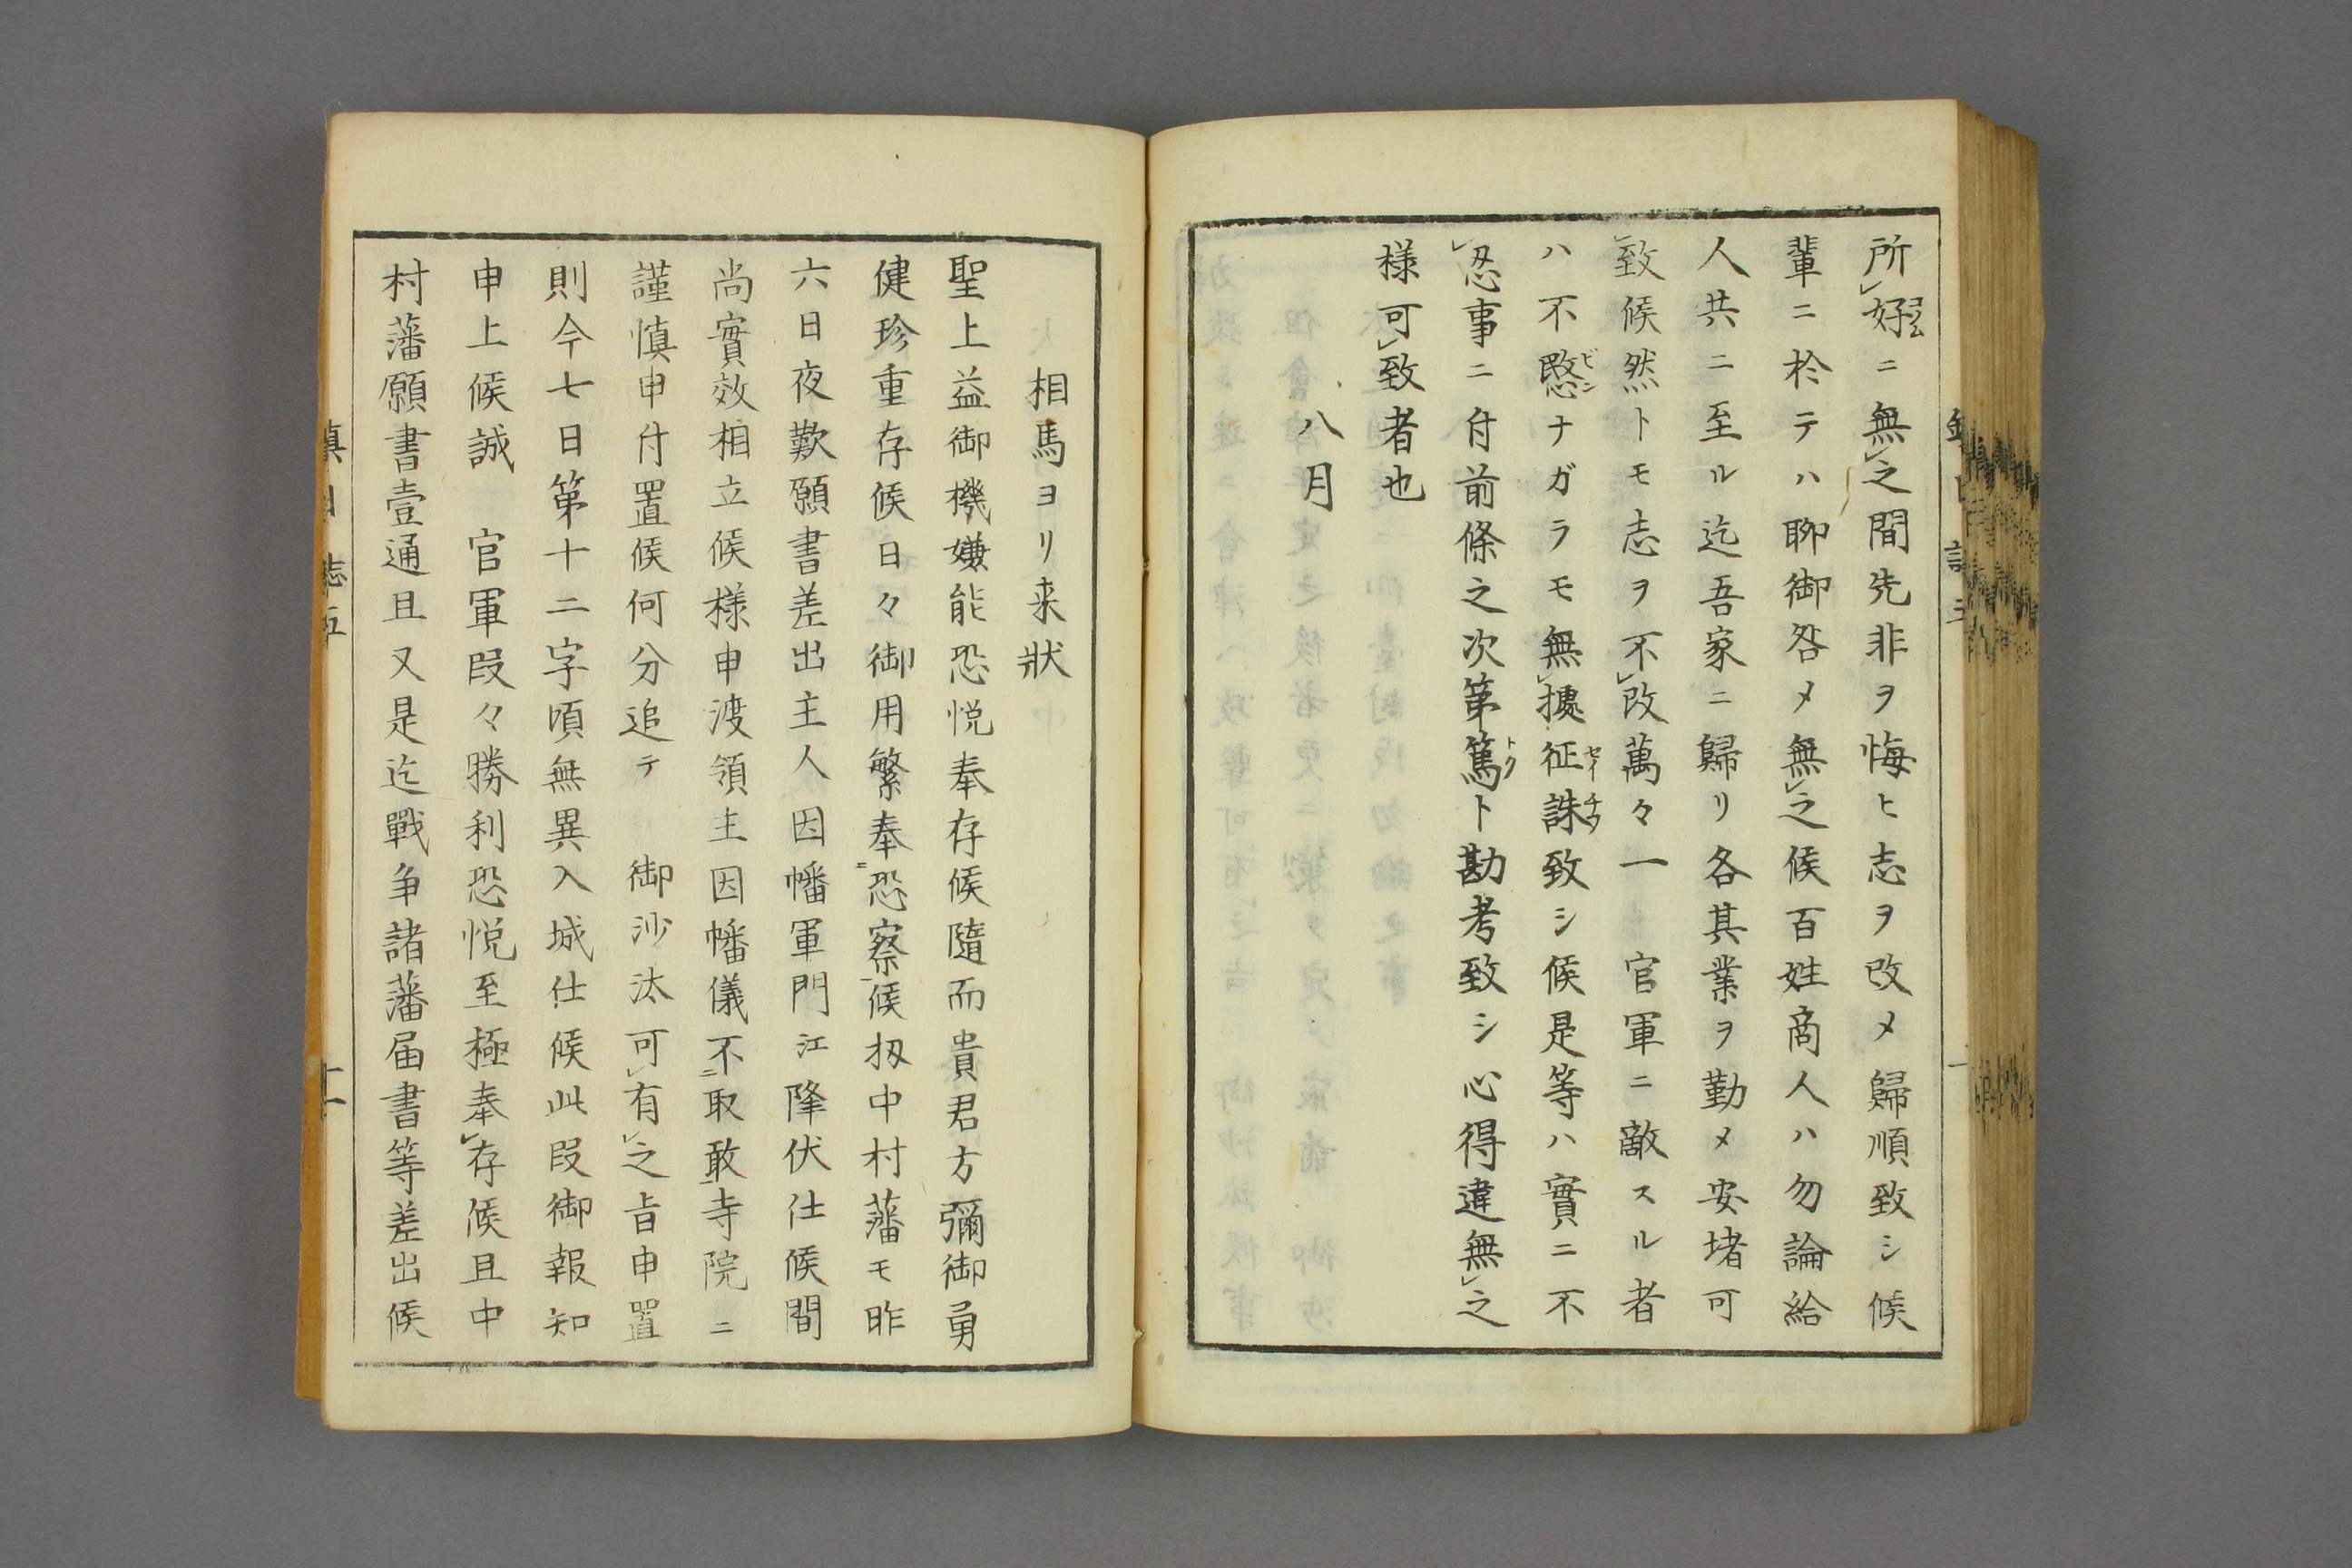 所㆑好ニ無㆑之間先非ヲ悔ヒ志ヲ改メ歸順致シ候
輩ニ於テハ聊御咎メ無㆑之候百姓商人ハ勿論給
人共ニ至ル迄吾家ニ歸リ各其業ヲ勤メ安堵可
㆑致候然トモ志ヲ不㆑改萬々一　官軍ニ敵スル者
ハ不愍ナガラモ無㆑據征誅致シ候是等ハ實ニ不
㆑忍事ニ付前條之次第篤ト勘考致シ心得違無㆑之
様可㆑致者也
八月
相馬ヨリ来狀
聖上益御機嫌能恐悦奉存候隨而貴君方彌御勇
健珍重存候日々御用繁奉㆓恐察㆒候扨中村藩モ昨
六日夜歎願書差出主人因幡軍門江降伏仕候間
尚實效相立候様申渡領主因幡儀不㆓取敢㆒寺院ニ
謹慎申付置候何分追テ　御沙汰可㆑有㆑之旨申置
則今七日第十二字頃無異入城仕候此段御報知
申上候誠　官軍段々勝利恐悦至極奉㆑存候且中
村藩願書壹通且又是迄戰争諸藩届書等差出候